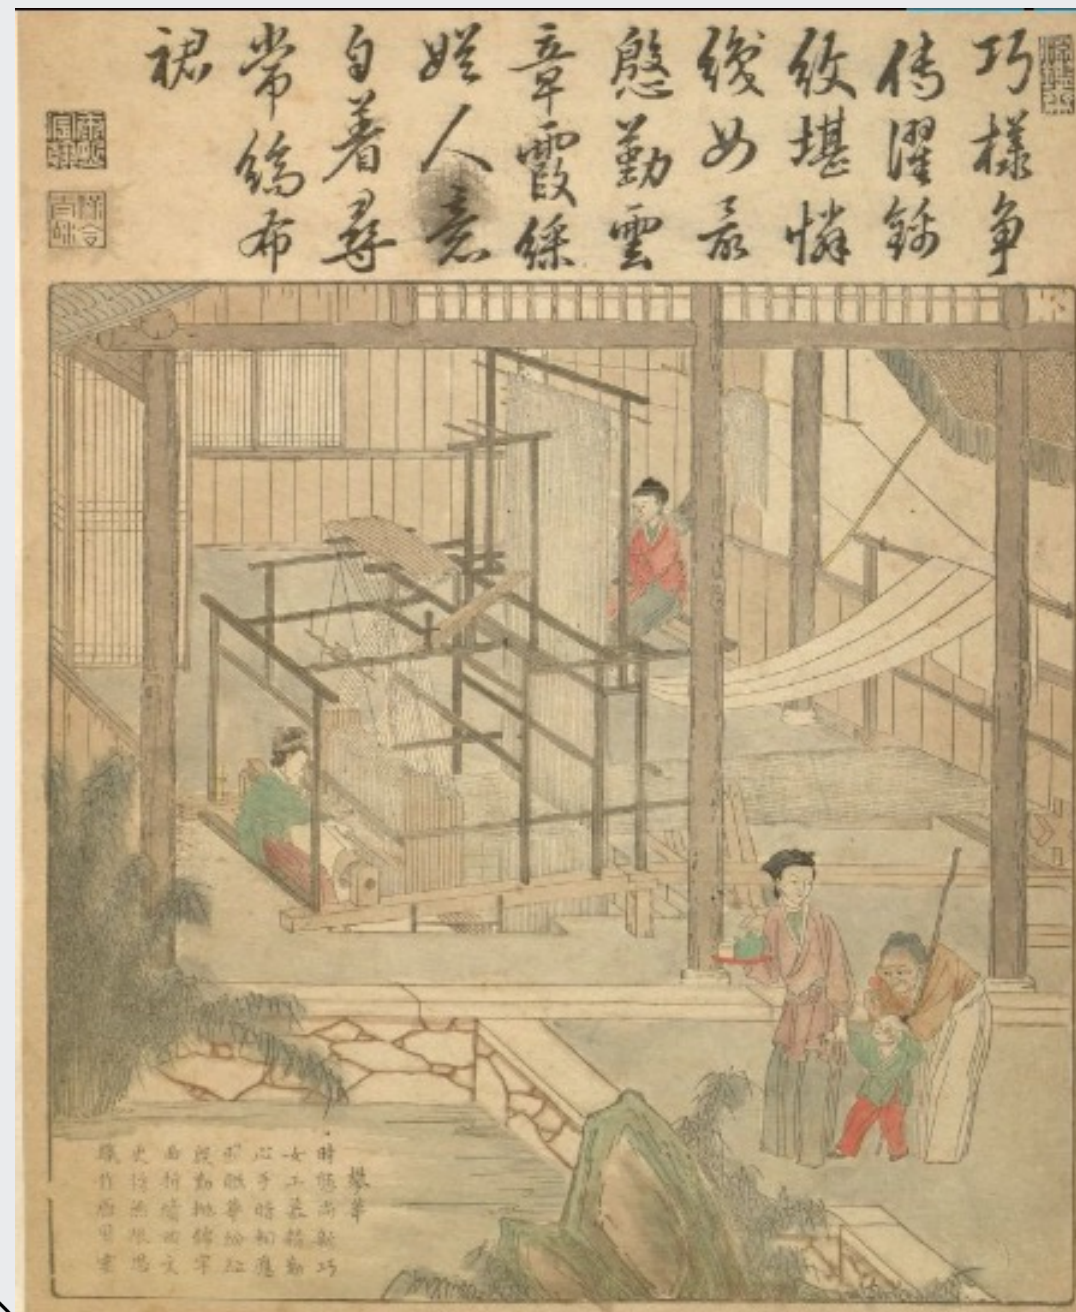 巧樣争
傳濯錦
紋堪憐
織女最
慇懃雲
章霞綵
娛人意
自着尋
常縞布
裙
康熙宸翰
保合太和
攀華
時態尚新巧
女工慕精勤
心手暗相應
照眼華紛紜
殷勤挑錦字
曲折續回文
更將無限思
織作雁背雲